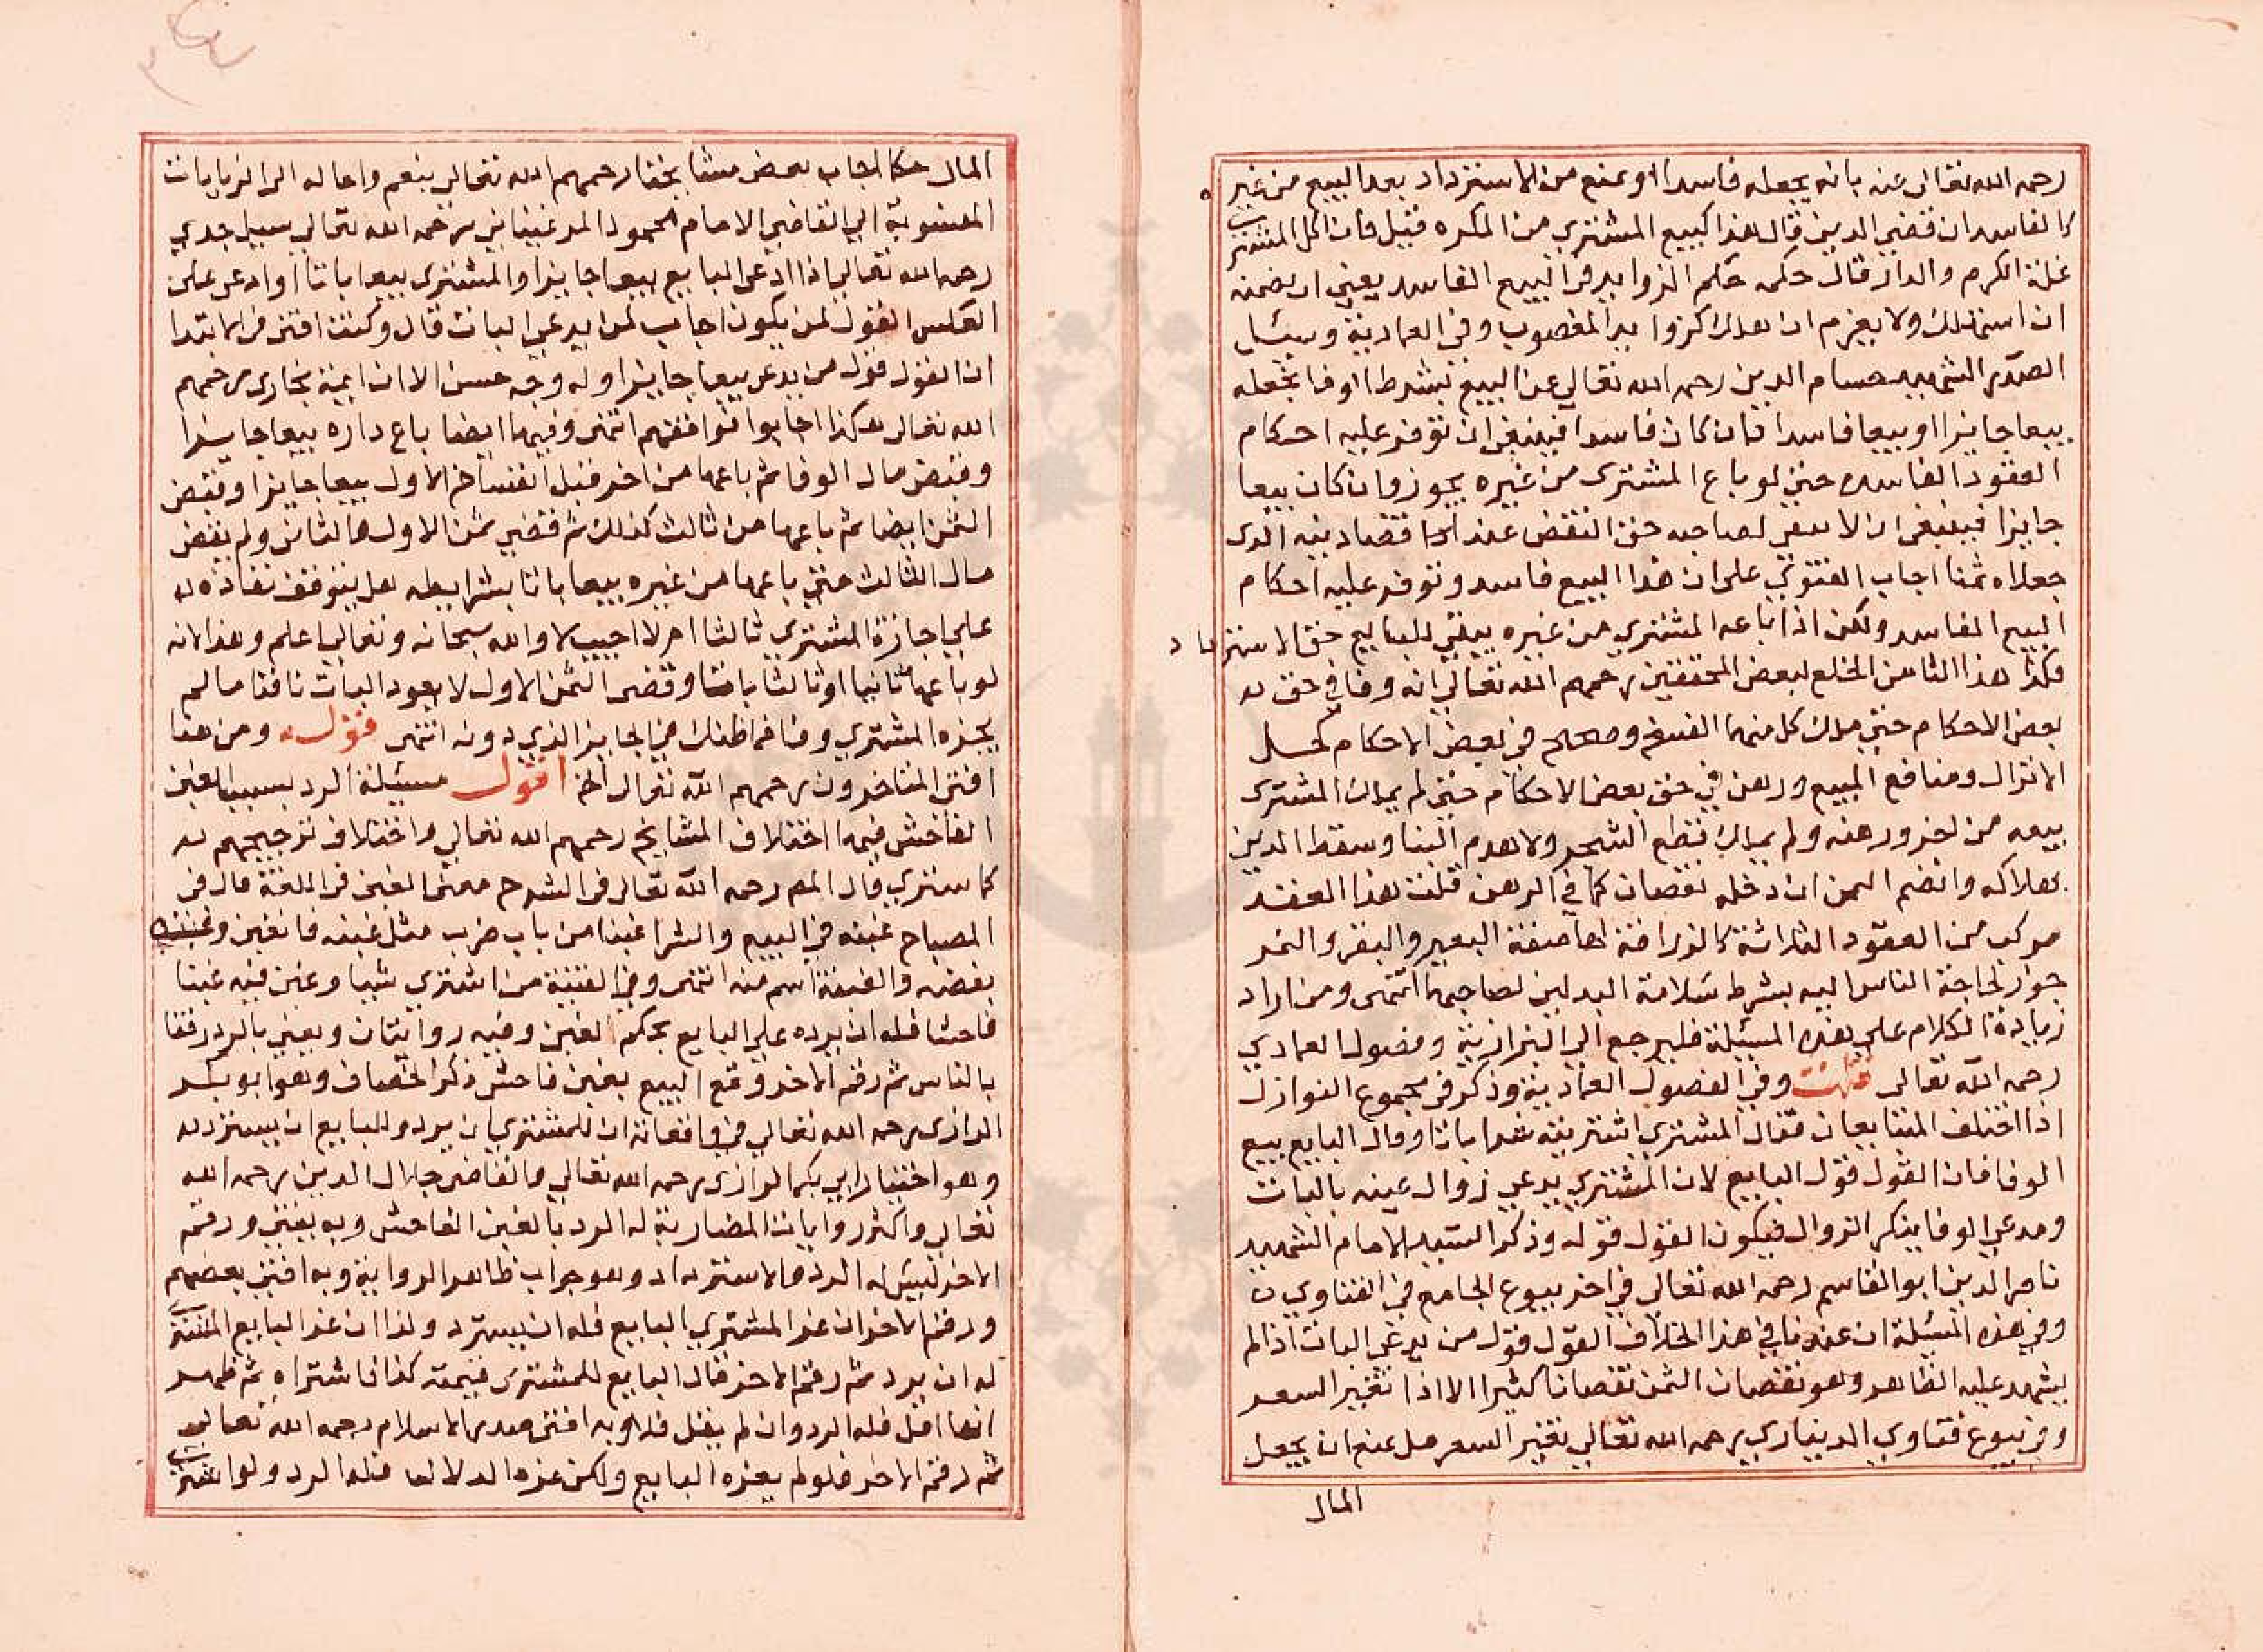 رحمه الله تعالى عنه بانه يجعله فاسدا او يمنع من الاسترداد بعد البيع من غير
كالفاسد ان قضى الدين قال هذا كبيع المشتري من المكره قيل فان اكل المشتري
غلة الكرم والدار قال حكمه حكم الزوايد في البيع الفاسد يعني ان يضمنه
ان استهلك ولا يغرم ان هلك كزوايد المغصوب وفي العمادية وسئل
الصدر الشهيد حسام الدين رحمه الله تعالى عن البيع بشرط الوفا يجعله
بيعا جايزا او بيعا فاسدا فان كان فاسدا فينبغي ان توفر عليه احكام
العقود الفاسده حتى لو باع المشتري من غيره يجوز وان كان بيعا
جايزا فينبغي ان لا يبقى لصاحبه حق النقض عند قضا دينه الذي
جعلاه ثمنا اجاب الفتوى على ان هذا البيع فاسد وتوفر عليه احكام
البيع الفاسد ولكن اذا باعه المشتري من غيره يبقى للبايع حق الاسترداد
هذا الثامن لبعض المحققين رحمهم الله تعالى انه وفا في حق
بعض الاحكام حتى ملك كل منهما الفسخ وصحيح في بعض الاحكام كحل
الانزال ومنافع المبيع ورهن في حق بعض الاحكام حتى لم يملك المشتري
بيعه من اخر ورهنه ولم يملك قطع الشجر ولا هدم البنا وسقط الدين
بهلاكه وانضم الثمن ان دخله نقصان كما في الرهن قلت هذا العقد
مركب من العقود الثلاثة كالزرافة لها صفة البعير والبقر والنمر
جوز لحاجة الناس اليه بشرط سلامة البدلين لصاحبهما انتهى ومن اراد
زيادة الكلام على هذه المسئلة فليرجع الى البزازية وفصول العمادي
رحمه الله تعالى قلت وفي الفصول العمادية وذكر في مجموع النوازل
اذا اختلف المتبايعان فقال المشتري اشتريته شرا باتا وقال البايع بيع
الوفا فان القول قول البايع لان المشتري يدعي زوال عينه بالبات
ومدعي الوفا ينكر الزوال فيكون القول قوله وذكر السيد الامام الشهيد
ناصر الدين ابو القاسم رحمه الله تعالى في اخر بيوع الجامع في الفتاوى
وفي هذه المسئلة ان عندنا في هذا الخلاف القول قول من يدعي البات اذا لم
يشهد عليه الظاهر وهو نقصان الثمن نقصانا كثيرا الا اذا تغير السعر
وفي بيوع فتاوى الديناري رحمه الله تعالى تغير السعر هل يمنع ان يجعل
المال
المال حكما اجاب بعض مشايخنا رحمهم الله تعالى بنعم واحاله الى الزيادات
المنسوبة الى القاضي الامام محمود المرغيناني رحمه الله تعالى سئل جدي
رحمه الله تعالى اذا ادعى البايع بيعا جايزا والمشتري بيعا باتا او ادعى على
العكس القول لمن يكون اجاب لمن يدعي البات قال وكنت افتي في الابتدا
ان القول قول من يدعي بيعا جايزا وله وجه حسن الا ان ايمة بخارى رحمهم
الله تعالى هكذا اجابوا فوافقتهم انتهى وفيها ايضا باع داره بيعا جايزا
وقبض مال الوفا ثم باعها من اخر قبل انفساخ الاول بيعا جايزا وقبض
الثمن ايضا ثم باعها من ثالث كذلك ثم قضى ثمن الاول والثاني ولم يقض
مال الثالث حتى باعها من غيره بيعا باتا بشرايطه هل يتوقف نفاذه
على اجازة المشتري ثالثا ام لا اجيب لا والله سبحانه وتعالى اعلم وهذا لانه
لو باعها ثانيا او ثالثا باتا وقضى الثمن الاول لا يعود البات نافذا ما لم
يجزه المشتري وفا فما ظنك في الجايز الذي دونه انتهى قوله ومن هنا
افتى المتاخرون رحمهم الله تعالى الخ اقول مسئلة الرد بسبب الغبن
الفاحش فيها اختلاف المشايخ رحمهم الله تعالى واختلاف ترجيحهم
كما سترى قال المص رحمه الله تعالى في الشرح معنى الغبن في اللغة قال في
المصباح غبنه في البيع والشرا غبنا من باب ضرب مثل غلبه فانغبن وغبنه
نقصه والغبينة اسم منه انتهى وفي القنية من اشترى شيا وغبن فيه غبنا
فاحشا فله ان يرده على البايع بحكم الغبن وفيه روايتان ويفتى بالرد رفقا
بالناس ثم رقم لاخر وقع البيع بغبن فاحش ذكر الخصاف وهو ابو بكر
الرازي رحمه الله تعالى في واقعاته ان للمشتري ان يرد وللبايع ان يسترد
وهو اختيار ابي بكر الرازي رحمه الله تعالى والقاضي جلال الدين رحمه الله
تعالى واكثر روايات المضاربة له الرد بالغبن الفاحش وبه يفتى ورقم
لاخر ليس له الرد والاسترداد وهو جواب ظاهر الرواية وبه افتى بعضهم
ورقم لاخر ان غر المشتري البايع فله ان يسترد وكذا ان غر البايع المشتري
له ان يرد ثم رقم لاخر قال البايع للمشتري قيمته كذا فاشتراه ثم ظهر
انها اقل فله الرد وان لم يقل فلا وبه افتى صدر الاسلام رحمه الله تعالى
ثم رقم لاخر فلو لم يغره البايع ولكن غره الدلال فله الرد ولو اشترى